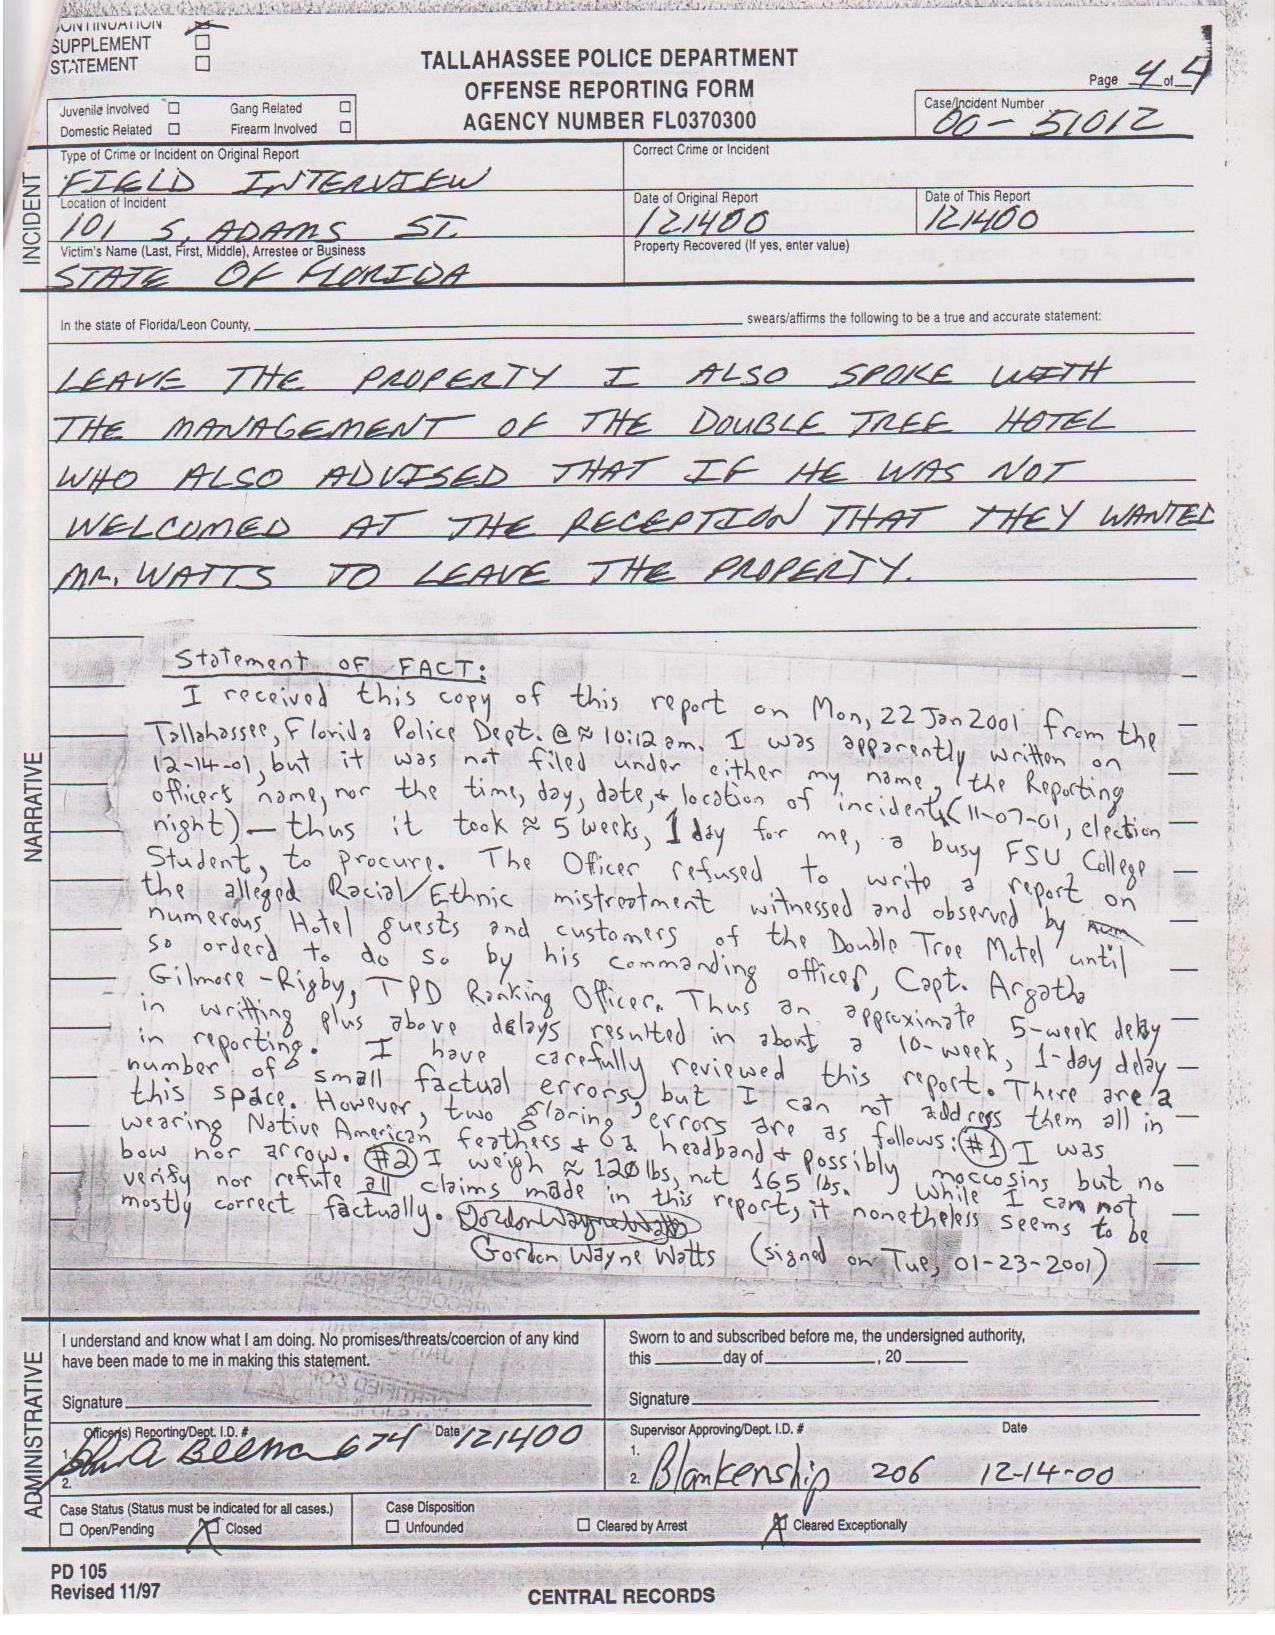 CONTINUATION
SUPPLEMENT
STATEMENT
TALLAHASSEE POLICE DEPARTMENT
OFFENSE REPORTING FORM
AGENCY NUMBER FL0370300
Page 4 of 4
Juvenile Involved Gang Related
Domestic Related Firearm Involved
Case/Incident Number
00-51012
INCIDENT
Type of Crime or Incident on Original Report
FIELD INTERVIEW
Correct Crime or Incident
Location of Incident
101 S. ADAMS ST.
Date of Original Report
121400
Date of This Report
121400
Victim's Name (Last, First, Middle), Arrestee or Business
STATE OF FLORIDA
Property Recovered (If yes, enter value)
In the state of Florida/Leon County, swears/affirms the following to be a true and accurate statement:
NARRATIVE
LEAVE THE PROPERTY I ALSO SPOKE WITH
THE MANAGEMENT OF THE DOUBLE TREE HOTEL
WHO ALSO ADVISED THAT IF HE WAS NOT
WELCOMED AT THE RECEPTION THAT THEY WANTED
MR. WATTS TO LEAVE THE PROPERTY.
Statement OF FACT:
I received this copy of this report on Mon, 22 Jan 2001 from the
Tallahassee, Florida Police Dept. @ ≈ 10:12 am. I was apparently written on
12-14-01, but it was not filed under either my name, the Reporting
officer's name, nor the time, day, date, + location of incident (11-07-01, election
night) — thus it took ≈ 5 weeks, 1 day for me, a busy FSU College
Student, to procure. The Officer refused to write a report on
the alleged Racial/Ethnic mistreatment witnessed and observed by
numerous Hotel guests and customers of the Double Tree Motel until
so orderd to do so by his commanding officer, Capt. Argatha
Gilmore-Rigby, TPD Ranking Officer. Thus an approximate 5-week delay
in writting plus above delays resulted in about a 10-week, 1-day delay
in reporting. I have carefully reviewed this report. There are a
number of small factual errors, but I can not address them all in
this space. However, two glaring errors are as follows: #1 I was
wearing Native American feathers + a headband + possibly moccosins but no
bow nor arrow. #2 I weigh ≈ 120 lbs, not 165 lbs. While I can not
verify nor refute all claims made in this report, it nonetheless seems to be
mostly correct factually. Gordon Wayne Watts
Gordon Wayne Watts (signed on Tue, 01-23-2001)
ADMINISTRATIVE
I understand and know what I am doing. No promises/threats/coercion of any kind
have been made to me in making this statement.
Signature
Sworn to and subscribed before me, the undersigned authority,
this day of , 20
Signature
Officer(s) Reporting/Dept. I.D. # Date
1. 674 121400
2.
Supervisor Approving/Dept. I.D. # Date
1.
2. Blankenship 206 12-14-00
Case Status (Status must be indicated for all cases.)
Open/Pending Closed
Case Disposition
Unfounded Cleared by Arrest Cleared Exceptionally
PD 105
Revised 11/97
CENTRAL RECORDS